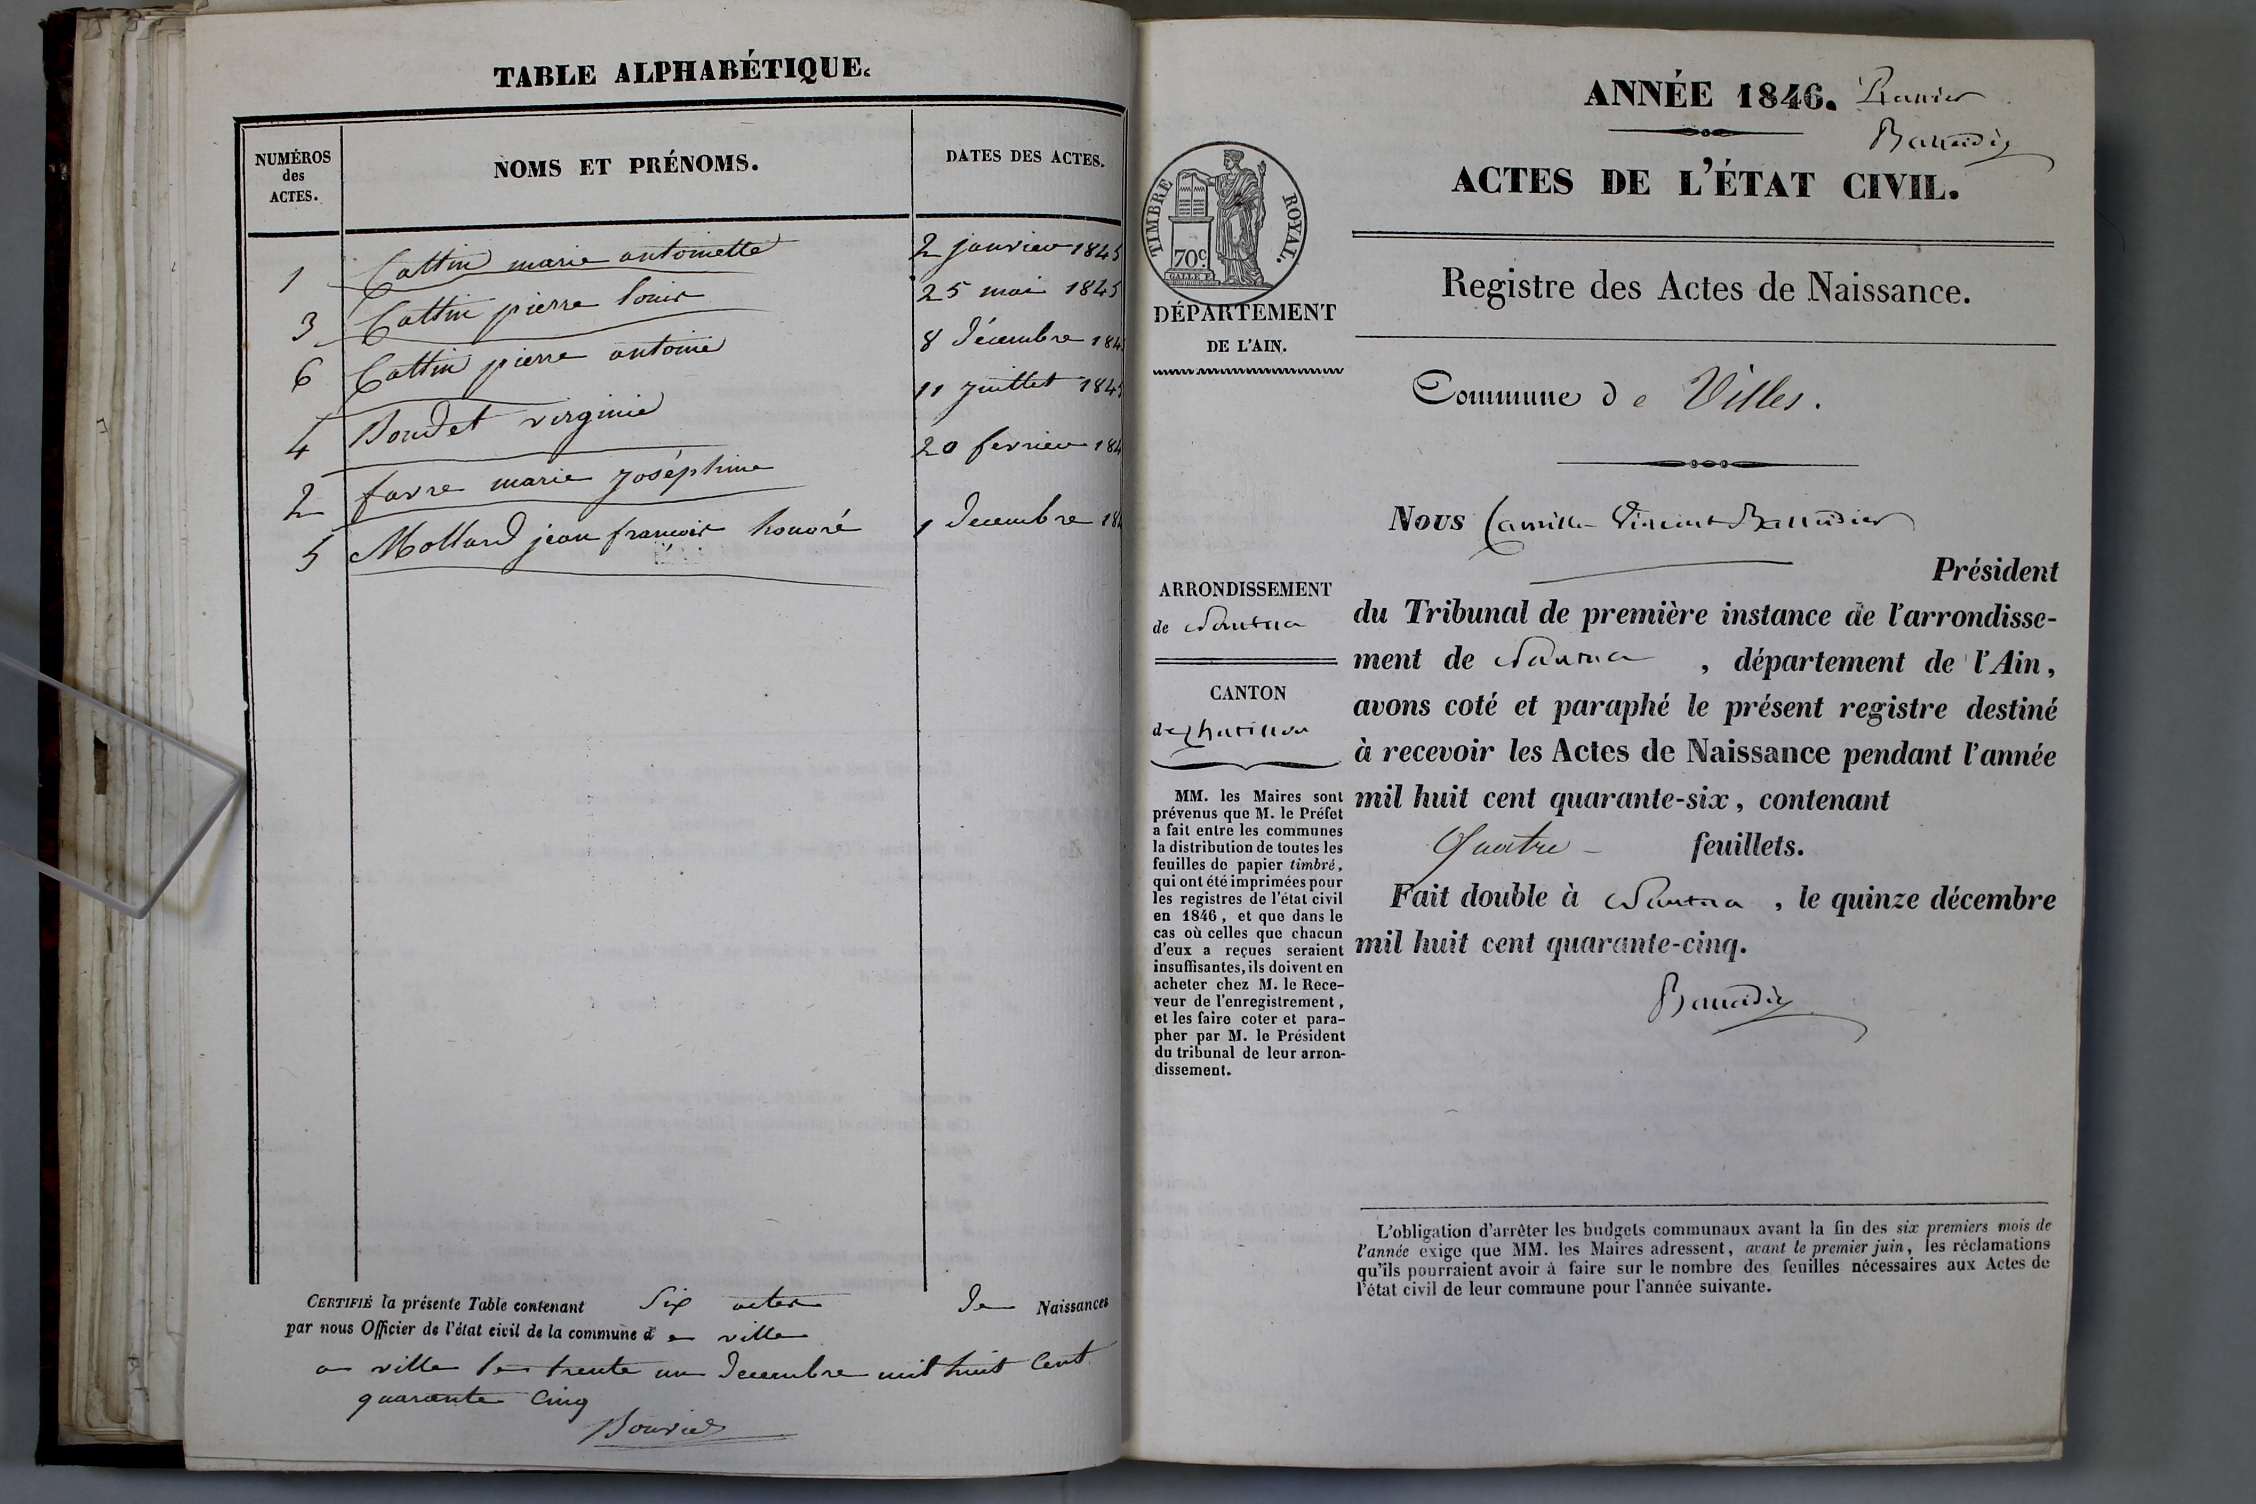 TABLE ALPHABÉTIQUE.
NUMÉROS
des
ACTES.
NOMS ET PRÉNOMS.
DATES DES ACTES.
1 Cattin marie antoinette 2 janvier 1845
3 Cattin pierre louis 25 mai 1845
6 Cattin pierre antoine 8 décembre 184
4 Boudet virginie 11 juillet 184
2 favre marie joséphine 20 fevrier 184
5 Mollard jean françois honoré 1 decembre 184
CERTIFIÉ la présente Table contenant Six actes de Naissances
par nous Officier de l'état civil de la commune de ville
a ville le trente un decembre mil huit Cent
quarante Cinq
Bouvier
ANNÉE 1846. Premier
ACTES DE L'ÉTAT CIVIL.
TIMBRE ROYAL.
70c
DÉPARTEMENT
DE L'AIN.
Registre des Actes de Naissance.
Commune de Villes.
Nous Camille Vincent
Président
du Tribunal de première instance de l'arrondisse-
ment de Nantua, département de l'Ain,
avons coté et paraphé le présent registre destiné
à recevoir les Actes de Naissance pendant l'année
mil huit cent quarante-six, contenant
Quatre feuillets.
Fait double à Nantua, le quinze décembre
mil huit cent quarante-cinq.
ARRONDISSEMENT
de Nantua
CANTON
de Chatillon
MM. les Maires sont
prévenus que M. le Préfet
a fait entre les communes
la distribution de toutes les
feuilles de papier timbré,
qui ont été imprimées pour
les registres de l'état civil
en 1846, et que dans le
cas où celles que chacun
d'eux a reçues seraient
insuffisantes, ils doivent en
acheter chez M. le Rece-
veur de l'enregistrement,
et les faire coter et para-
pher par M. le Président
du tribunal de leur arron-
dissement.
L'obligation d'arrêter les budgets communaux avant la fin des six premiers mois de
l'année exige que MM. les Maires adressent, avant le premier juin, les réclamations
qu'ils pourraient avoir à faire sur le nombre des feuilles nécessaires aux Actes de
l'état civil de leur commune pour l'année suivante.